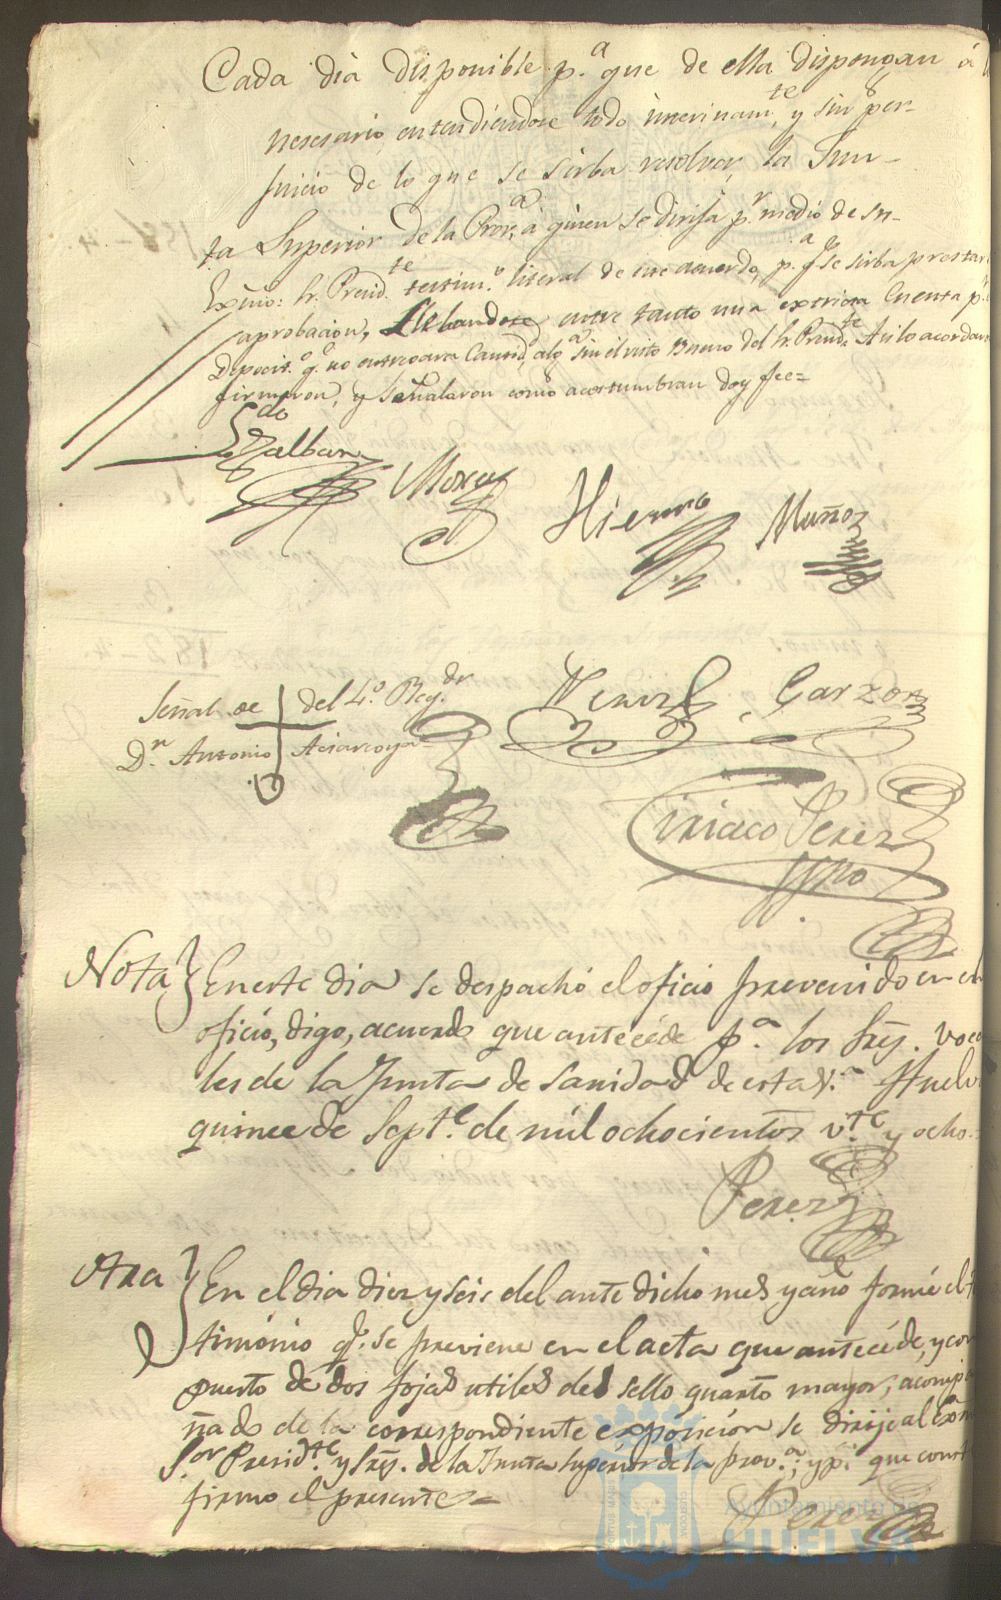 Cada dia disponible p.ª que de ella dispongan á
nesesario, entendiendose todo interinam.te y sin per-
juicio de lo que se sirba resolver la Jun-
ta Superior de la Prov.ª á quien se dirija p.r medio de su
Exmo: Sr. Presid.te testim.º literal de este acuerdo, p.ª q.e se sirba prestar
aprobacion, llebandose entre tanto una extricta Cuenta p.r
Deposit.º q.e no entregara Cantid. alg.ª sin el visto Bueno del Sr. Presid.te Asi lo acordaron
firmaron, y señalaron como acostumbran doy fee=
Moxa
Hierro
Muñoz
Señal de del 4.º Reg.dr
D.n Antonio
Garzon
Ciriaco Perez
Nota} En este dia se despachó el oficio prevenido en el
oficio, digo, acuerdo que antecéde p.ª los Sres. voca
les de la Junta de Sanidad de esta V.ª Huelv
quince de Sept.e de mil ochocientos v.te y ocho.=
Perez
Otra} En el dia diez y seis del ante dicho mes y año formé el t
timónio q.e se previene en el acta que antecéde, y com
puesto de dos fojas utiles del sello quarto mayor, acompa
ñado de la correspondiente exposición se dirije al Exm
S.or Presid.te y Sres. de la Junta Superiór de la prov.ª; y p.ª que const
firmo el presente=
Perez
Ayuntamiento de
HUELVA